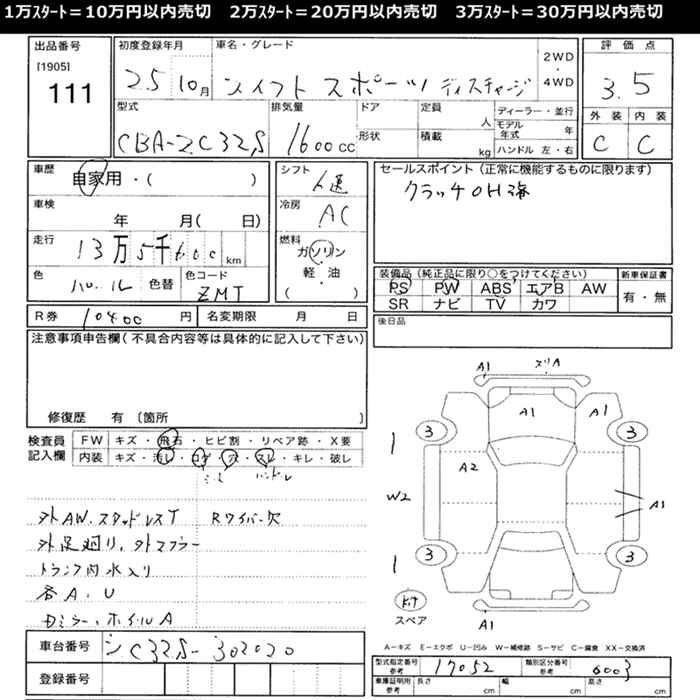 1万ｽﾀｰﾄ＝10万円以内売切　2万ｽﾀｰﾄ＝20万円以内売切　3万ｽﾀｰﾄ＝30万円以内売切
出品番号 初度登録年月 車名・グレード 評価点
[1905]
111
25 10月 スイフト スポーツ ディスチャージ 2WD・4WD 3.5
型式 排気量 ドア 定員 人 ディーラー・並行 外装 内装
CBA-ZC32S 1600cc 形状 積載 kg モデル年式 年 C C
ハンドル 左・右
車歴 自家用・( ) シフト 6速 セールスポイント (正常に機能するものに限ります)
クラッチOH済
車検 年 月( 日) 冷房 AC
走行 13万5千600km 燃料 ガソリン
軽・油
( )
色 色替 色コード ZMT
装備品(純正品に限り○をつけてください) 新車保証書
PS PW ABS エアB AW 有・無
SR ナビ TV カワ
R券 10400円 名変期限 月 日 後日品
注意事項申告欄(不具合内容等は具体的に記入して下さい)
修復歴 有 〔箇所 〕
検査員記入欄 FW キズ・飛石・ヒビ割・リペア跡・X要
内装 キズ・汚レ・コゲ・穴・スレ・キレ・破レ
ハンドル
外AW.スタッドレスT Rワイパー欠
外足廻り、外マフラー
トランク内水入り
各A.U
ミラー、ホイルA
A1 A1 A1
3 3
A2
W2 A1
3 3
スペア A1
A－キズ E－エクボ U－凹み W－補修跡 S－サビ C－腐食 XX－交換済
車台番号 ZC32S-302020
登録番号
型式指定番号 参考 17052 類別区分番号 参考 6003
車庫証明用 参考 長さ cm 幅 cm 高さ cm